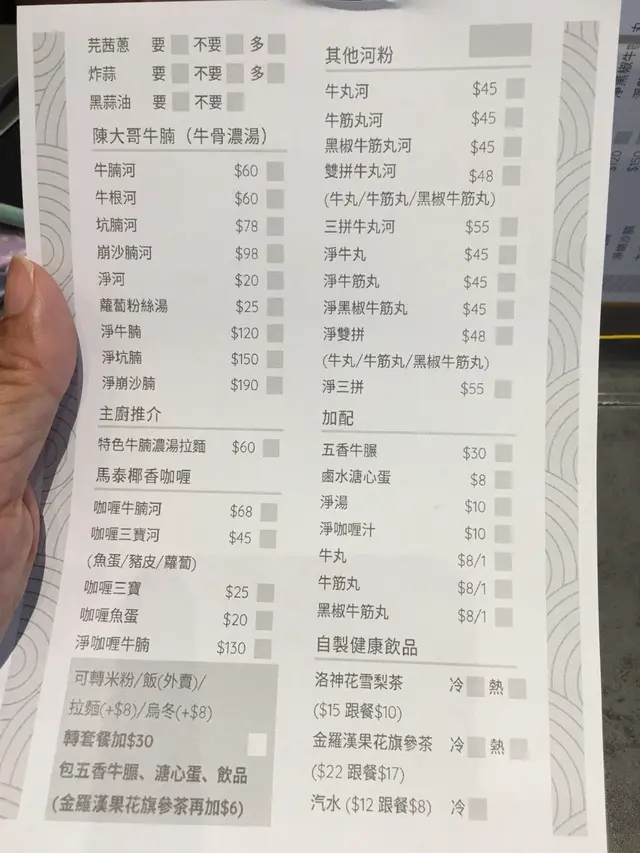 芫茜蔥 要 不要 多
炸蒜 要 不要 多
黑蒜油 要 不要
陳大哥牛腩（牛骨濃湯）
牛腩河 $60
牛根河 $60
坑腩河 $78
崩沙腩河 $98
淨河 $20
蘿蔔粉絲湯 $25
淨牛腩 $120
淨坑腩 $150
淨崩沙腩 $190
主廚推介
特色牛腩濃湯拉麵 $60
馬泰椰香咖喱
咖喱牛腩河 $68
咖喱三寶河 $45
(魚蛋/豬皮/蘿蔔)
咖喱三寶 $25
咖喱魚蛋 $20
淨咖喱牛腩 $130
可轉米粉/飯(外賣)/
拉麵(+$8)/烏冬(+$8)
轉套餐加$30
包五香牛𦟌、溏心蛋、飲品
(金羅漢果花旗參茶再加$6)
其他河粉
牛丸河 $45
牛筋丸河 $45
黑椒牛筋丸河 $45
雙拼牛丸河 $48
(牛丸/牛筋丸/黑椒牛筋丸)
三拼牛丸河 $55
淨牛丸 $45
淨牛筋丸 $45
淨黑椒牛筋丸 $45
淨雙拼 $48
(牛丸/牛筋丸/黑椒牛筋丸)
淨三拼 $55
加配
五香牛𦟌 $30
鹵水溏心蛋 $8
淨湯 $10
淨咖喱汁 $10
牛丸 $8/1
牛筋丸 $8/1
黑椒牛筋丸 $8/1
自製健康飲品
洛神花雪梨茶 冷 熱
($15 跟餐$10)
金羅漢果花旗參茶 冷 熱
($22 跟餐$17)
汽水 ($12 跟餐$8) 冷